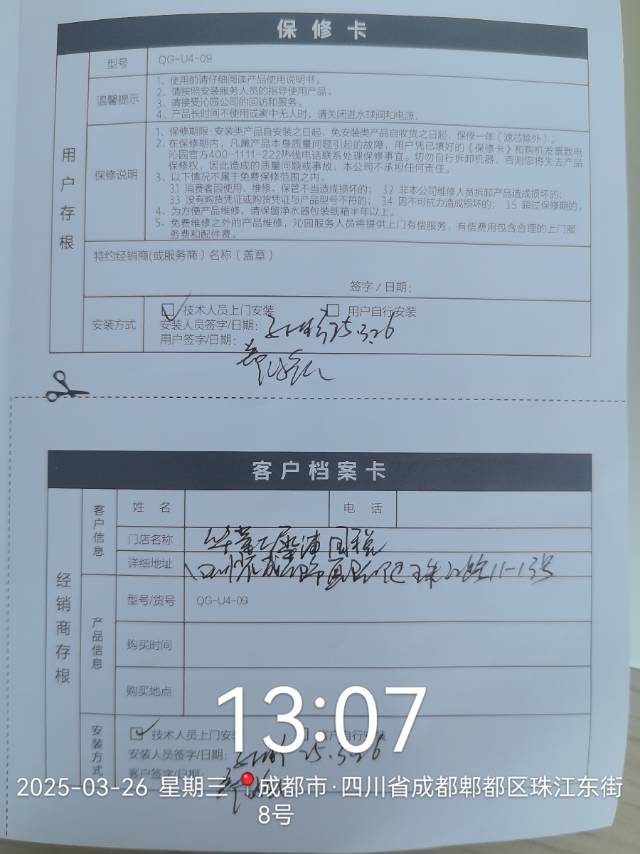 保修卡
型号 QG-U4-09
温馨提示
1、使用前请仔细阅读产品使用说明书。
2、请按照安装服务人员的指导使用产品。
3、请接受沁园公司的回访和服务。
4、产品长时间不使用或家中无人时，请关闭进水球阀和电源。
用户存根
保修说明
1、保修期限：安装类产品自安装之日起，免安装类产品自收货之日起，保修一年（滤芯除外）。
2、在保修期内，凡属产品本身质量问题引起的故障，用户凭已填好的《保修卡》和购机发票致电
沁园官方400-1111-222热线电话联系处理保修事宜。切勿自行拆卸机器，否则您将失去产品
保修权，因此造成的质量问题或事故，本公司不承担任何责任。
3、以下情况不属于免费保修范围之内。
3.1 消费者因使用、维修、保管不当造成损坏的； 3.2 非本公司维修人员拆卸产品造成损坏的；
3.3 没有购货凭证或购货凭证与产品型号不符的； 3.4 因不可抗力造成损坏的； 3.5 超过保修期的。
4、为方便产品维修，请保留净水器包装纸箱半年以上。
5、免费维修之外的产品维修，沁园服务人员将提供上门有偿服务，有偿费用包含合理的上门服
务费和配件费。
特约经销商(或服务商）名称（盖章）
签字 / 日期:
安装方式
技术人员上门安装 用户自行安装
安装人员签字/日期: 25.3.26
用户签字/日期:
客户档案卡
经销商存根
客户信息
姓 名 电 话
门店名称
详细地址 11-13号
产品信息
型号/货号 QG-U4-09
购买时间
购买地点
13:07
安装方式
技术人员上门安
安装人员签字/日期: 25.3.26
客户签字/日期:
2025-03-26 星期三 成都市·四川省成都郫都区珠江东街
8号